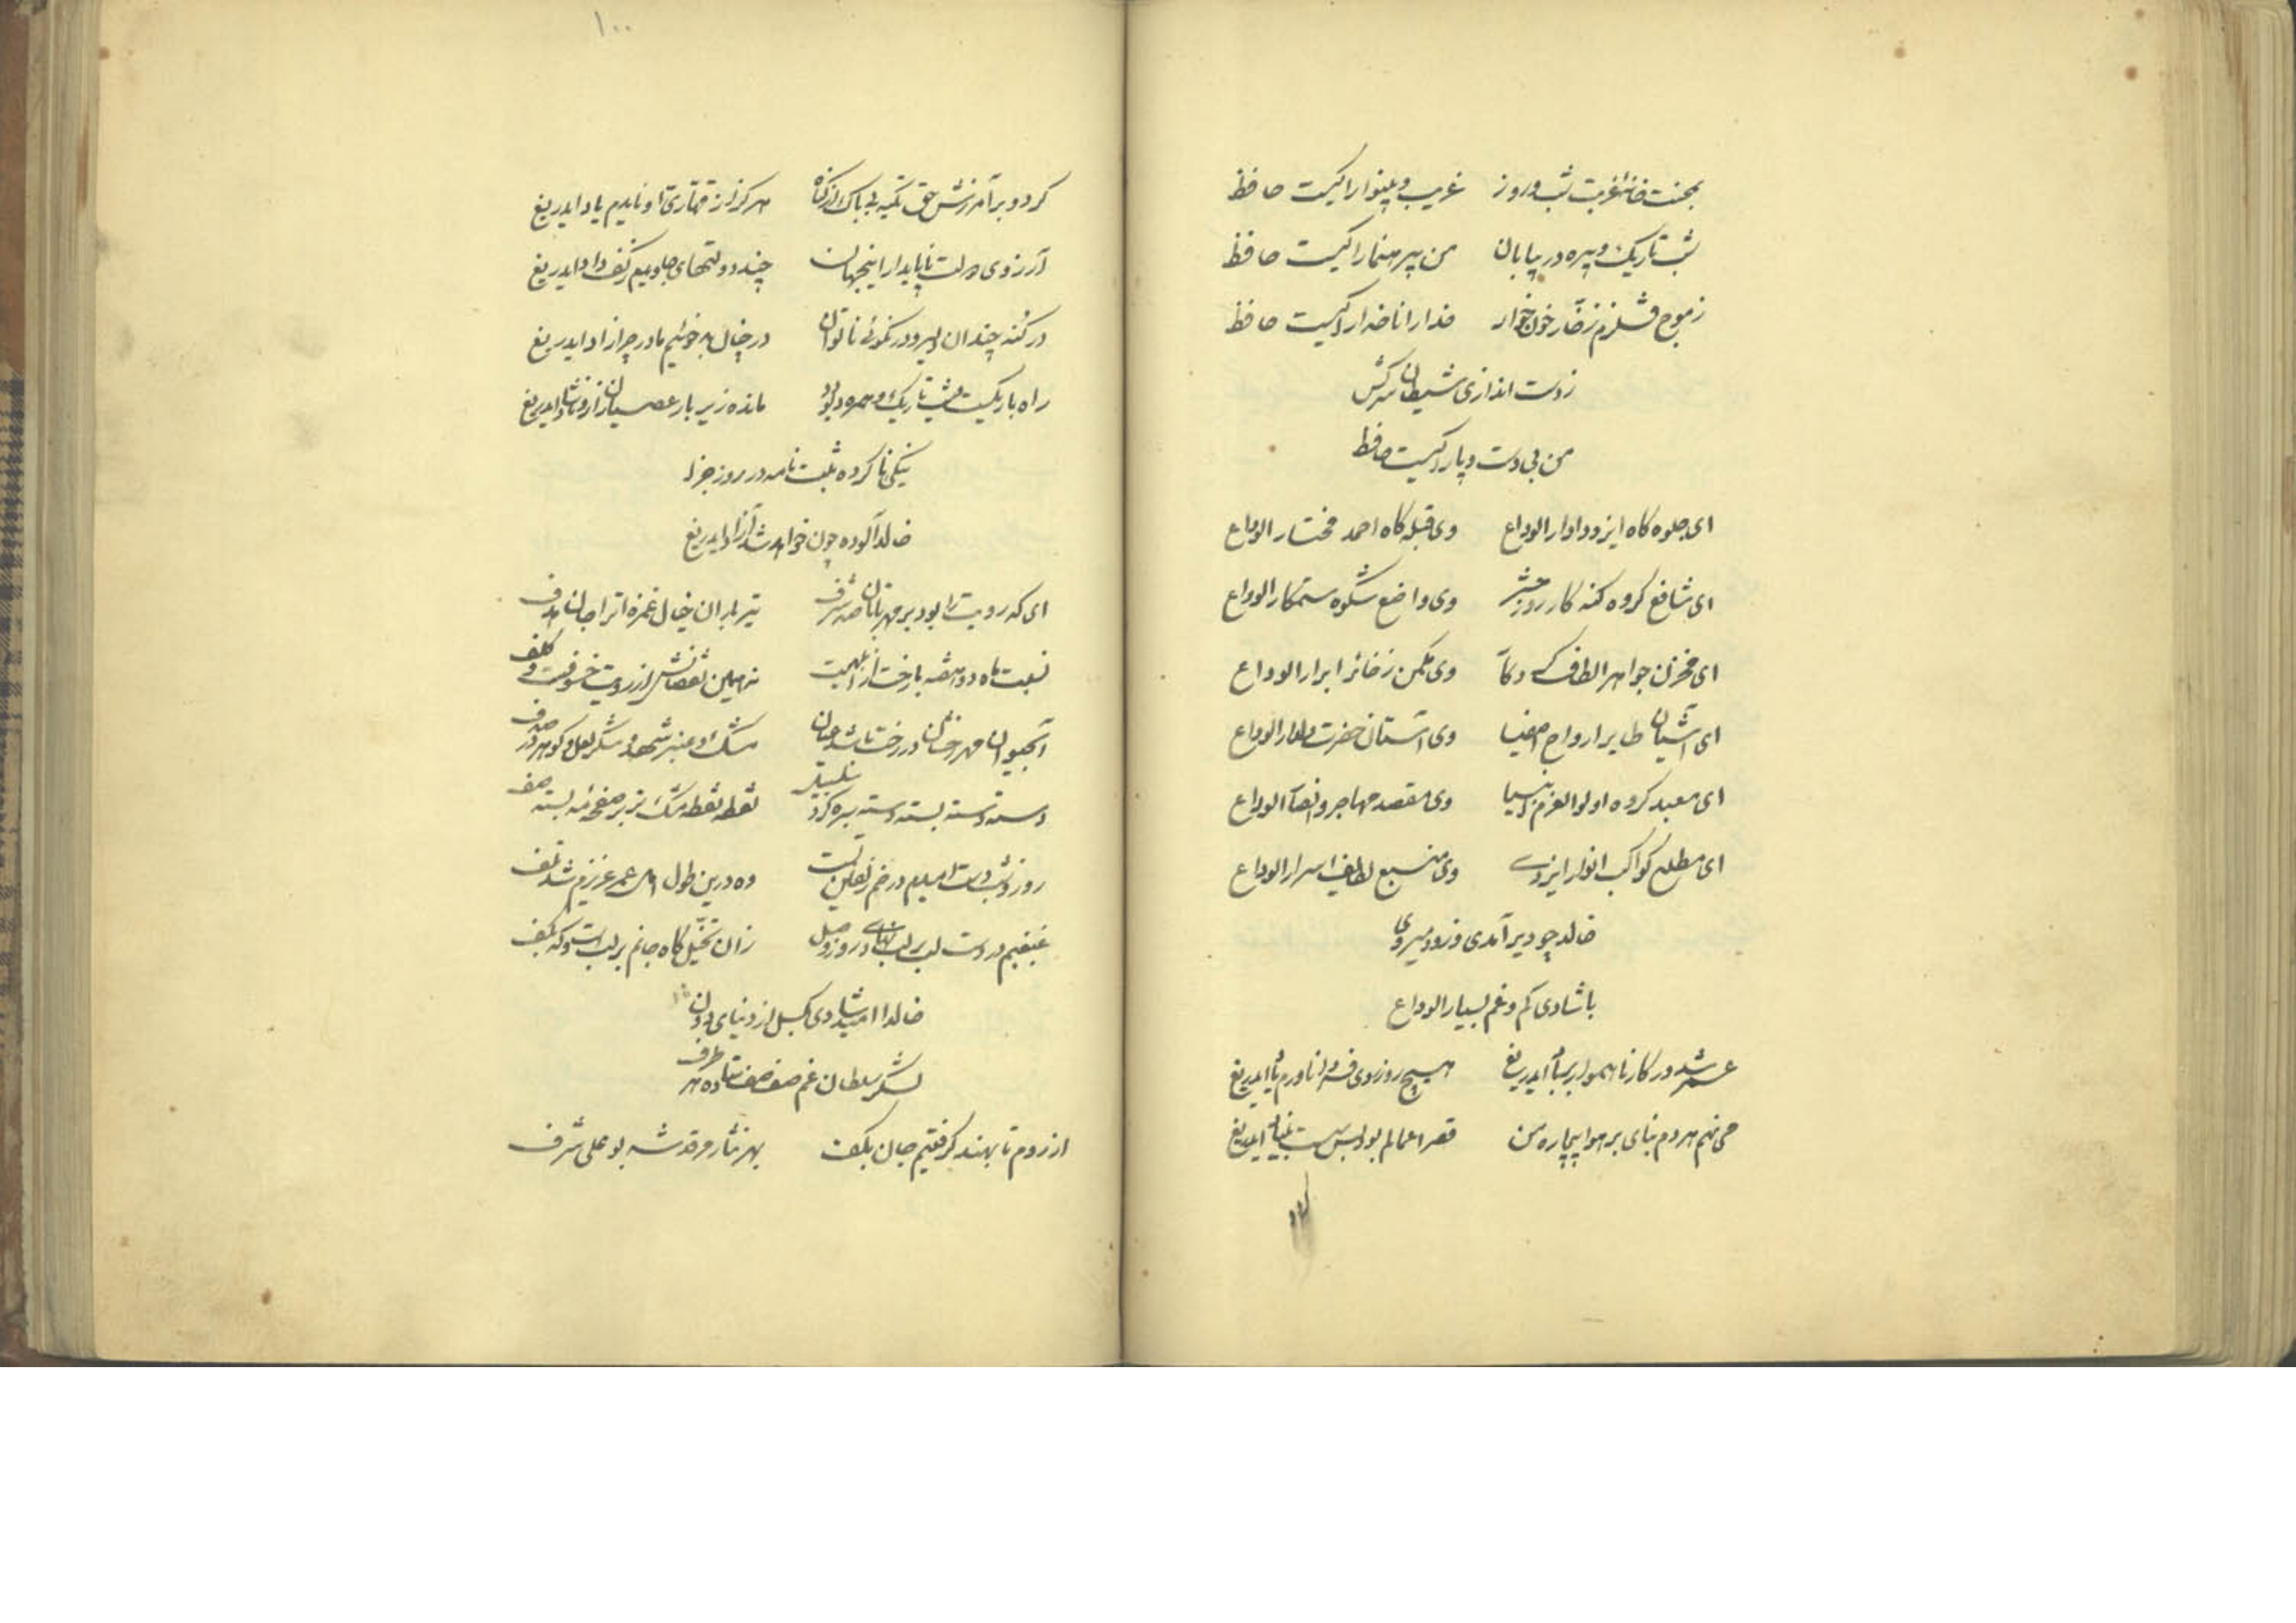 بمحنت خانهٔ غربت شب و روز غریب و بینوا را کیست حافظ
شب تاریک و پیره در بیابان من بیرهنما را کیست حافظ
ز موج قلزم زخّار خون خوار خدا را ناخدا را کیست حافظ
ز دست اندازی شیطان سرکش
من بی دست و پا را کیست حافظ
ای جلوه کاه ایزد دادار الوداع وی قبله کاه احمد مختار الوداع
ای شافع کروه کنه کار روز حشر وی واضع شکوه ستمکار الوداع
ای مخزن جواهر الطاف وی مکمن ذخائر ابرار الوداع
ای آشیان طایر ارواح اصفیا وی آستان حضرت الوداع
ای معبد کروه اولو العزم انبیا وی مقصد مهاجر و انصار الوداع
ای مطلع کواکب انوار ایزدی وی منبع لطایف اسرار الوداع
خالد چو دیر آمدی و زود میروی
با شادی کم و غم بسیار الوداع
عمر شد در کار ناهموار بر باد ایدریغ هیچ روزی وی فردا ناوردم یاد ایدریغ
می نهم هردم بنای بر هوا بیچاره من قصر اعمالم بود بس سست بنیاد ایدریغ
۱۰۰
کرد و بر آمرزش حق تکیه بی باک از کناه هرکز از قهّاری او نایدم یاد ایدریغ
آرزوی دولت ناپایدار اینجهان چند دولتهای جاویدم ز کف داد ایدریغ
در کنه چندان دلیر و در نکوئی ناتوان در چنان بد خوئیم مادر چرا زاد ایدریغ
راه باریکست و شب تاریک و همره دیو مانده زیر بار عصیان زار و ناشاد ایدریغ
نیکی ناکرده ثبت نامه در روز جزا
خالد آلوده چون خواهد شد آزاد ایدریغ
ای که رویت را بود بر مهر تابان صد شرف تیر باران خیال غمزه ات را جان هدف
نسبت ماه دو هفته با رخت از ابلهیست نه همین نقصانش از رویت خسوفست و کلف
آبحیوان مهر رخشان در رخت تا شد عیان مشک و عنبر شهد و شکر لعل و کوهر در صدف
دسته دسته بسته دسته سبزه کرد سلسبیل نقطه نقطه مشک تر بر صفحهٔ مه بسته صف
روز و شب دست امیدم در خم زلفین تست وه درین طول امل عمر عزیزم شد تلف
غبغبم در دست لب بر لب نهادی روز وصل زان تخیّل کاه جانم بر لب است و که بکف
خالدا امید شادی بکسل از دنیای دون
لشکر سلطان غم صف صف ستاده هر طرف
از روم تا بهند کرفتیم جان بکف بهر نثار مرقد شه بو علی شرف